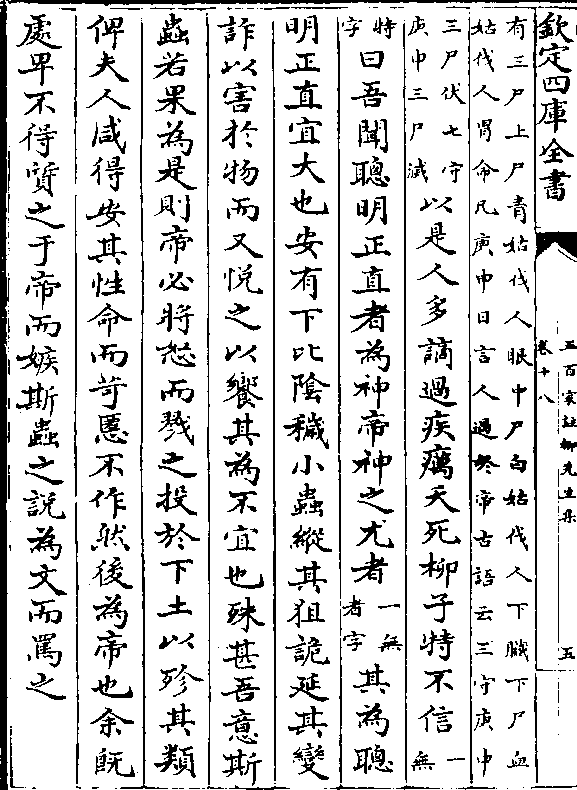 欽定四庫全書
五百家註柳先生集
卷十八
五
有三尸上尸青姑伐人眼中尸白姑伐人下臟下尸血
姑伐人胃命凡庚申日言人過於帝古語云三守庚申
三尸伏七守庚申三尸滅以是人多謫過疾癘夭死柳子特不信一無
特字曰吾聞聰明正直者為神帝神之尤者一無者字其為聰
明正直宜大也安有下比陰穢小蟲縱其狙詭延其變
詐以害於物而又悅之以饗其為不宜也殊甚吾意斯
蟲若果為是則帝必將怒而戮之投於下土以殄其類
俾夫人咸得安其性命而苛慝不作然後為帝也余既
處卑不得質之于帝而嫉斯蟲之說為文而罵之